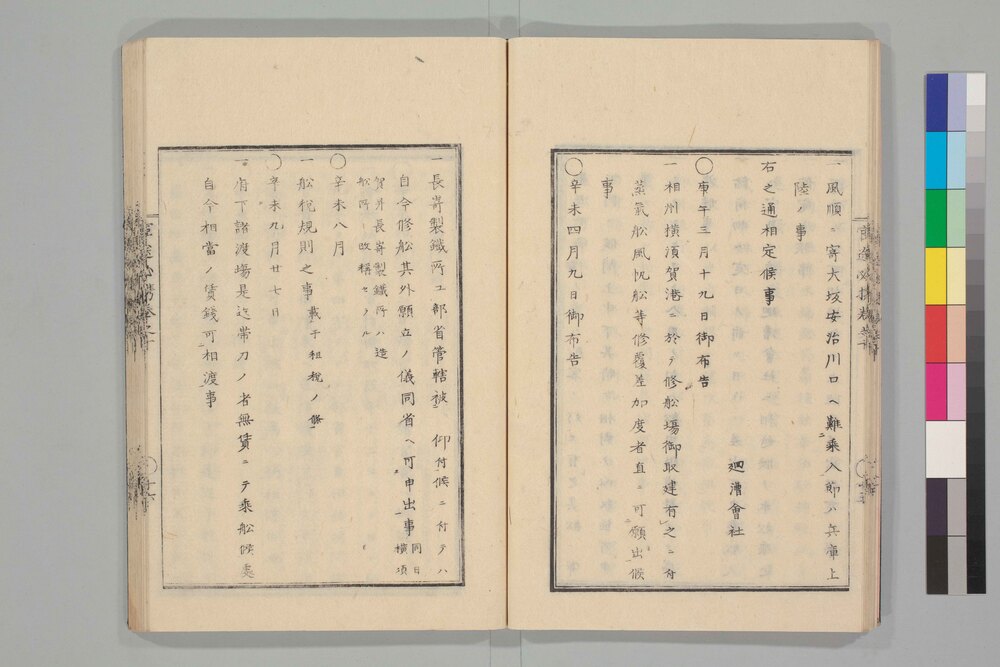 一風順ニ寄大坂安治川口ヘ難乗入節ハ兵庫上
陸ノ事
右之通相定候事
廻漕會社
〇庚午三月十九日御布告
一相州横須賀港ニ於テ修舩場御取建有之ニ付
蒸氣舩風帆舩等修覆差加度者直ニ可願出候
事
〇辛未四月九日御布告
一長嵜製鐵所工部省管轄被 仰付候ニ付テハ
自今修舩其外願立ノ儀同省ヘ可申出事 同日横須
賀并長嵜製鐵所ハ造
舩所ト改稱セラル
〇辛未八月
一舩税規則之事 載于租税ノ條
〇辛未九月廿七日
一府下諸渡場是迄帯刀ノ者無賃ニテ乗舩候處
自今相當ノ賃錢可相渡事